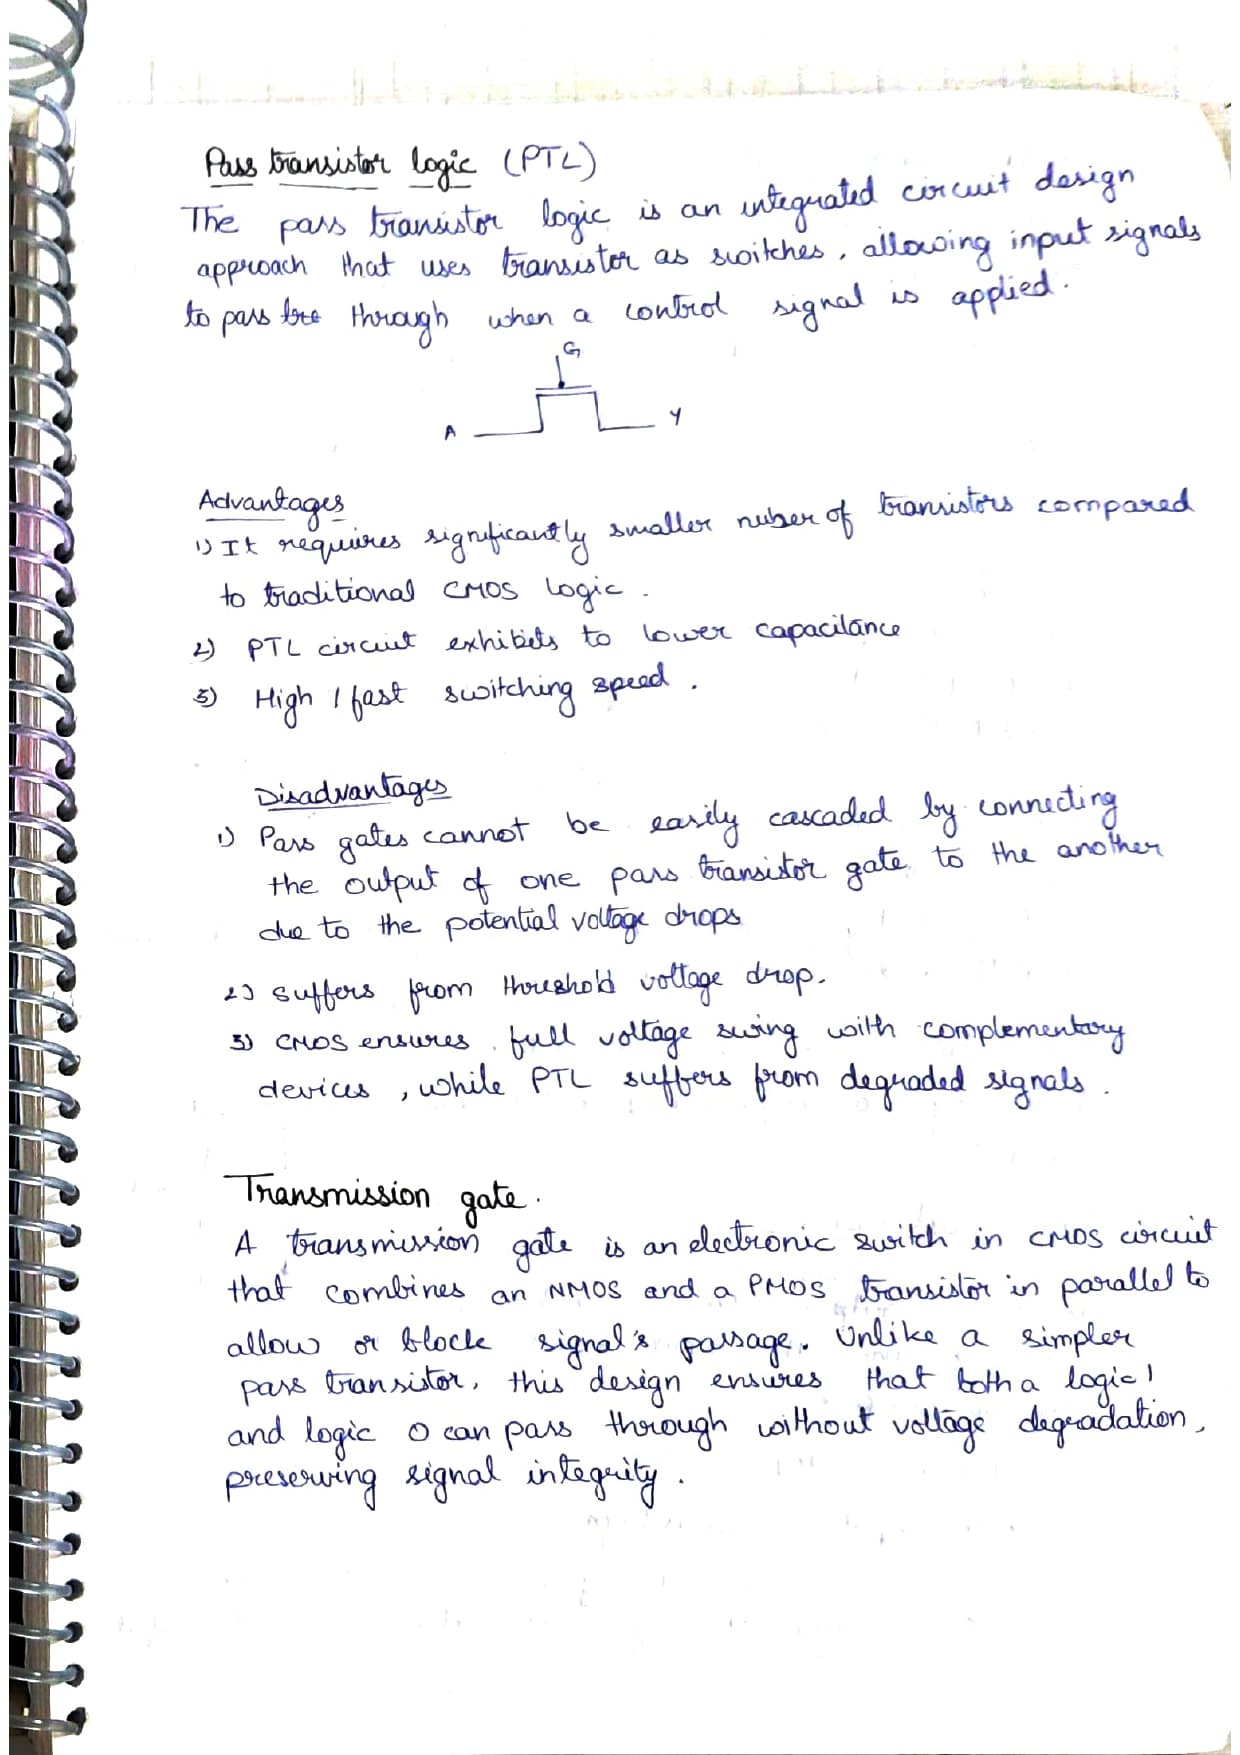 Pass transistor logic (PTL)
The pass transistor logic is an integrated circuit design
approach that uses transistor as switches, allowing input signals
to pass through when a control signal is applied.
G
A Y
Advantages
1) It requires significantly smaller nuber of transistors compared
to traditional CMOS logic.
2) PTL circuit exhibits to lower capacitance
3) High / fast switching speed.
Disadvantages
1) Pass gates cannot be easily cascaded by connecting
the output of one pass transistor gate to the another
due to the potential voltage drops
2) suffers from threshold voltage drop.
3) CMOS ensures full voltage swing with complementary
devices, while PTL suffers from degraded signals.
Transmission gate.
A transmission gate is an electronic switch in CMOS circuit
that combines an NMOS and a PMOS transistor in parallel to
allow or block signal's passage. Unlike a simpler
pass transistor, this design ensures that both a logic 1
and logic 0 can pass through without voltage degradation,
preserving signal integrity.